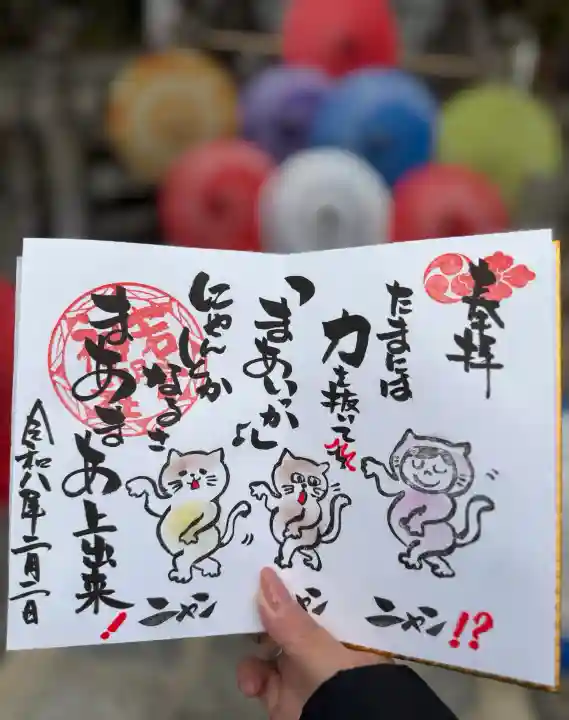 奉拝
たまには
力を抜いて
「まあいっか」
にゃんとか
なるさ
まあまあ上出来!
令和八年二月二日
ニャン
ニャン
ニャン!?